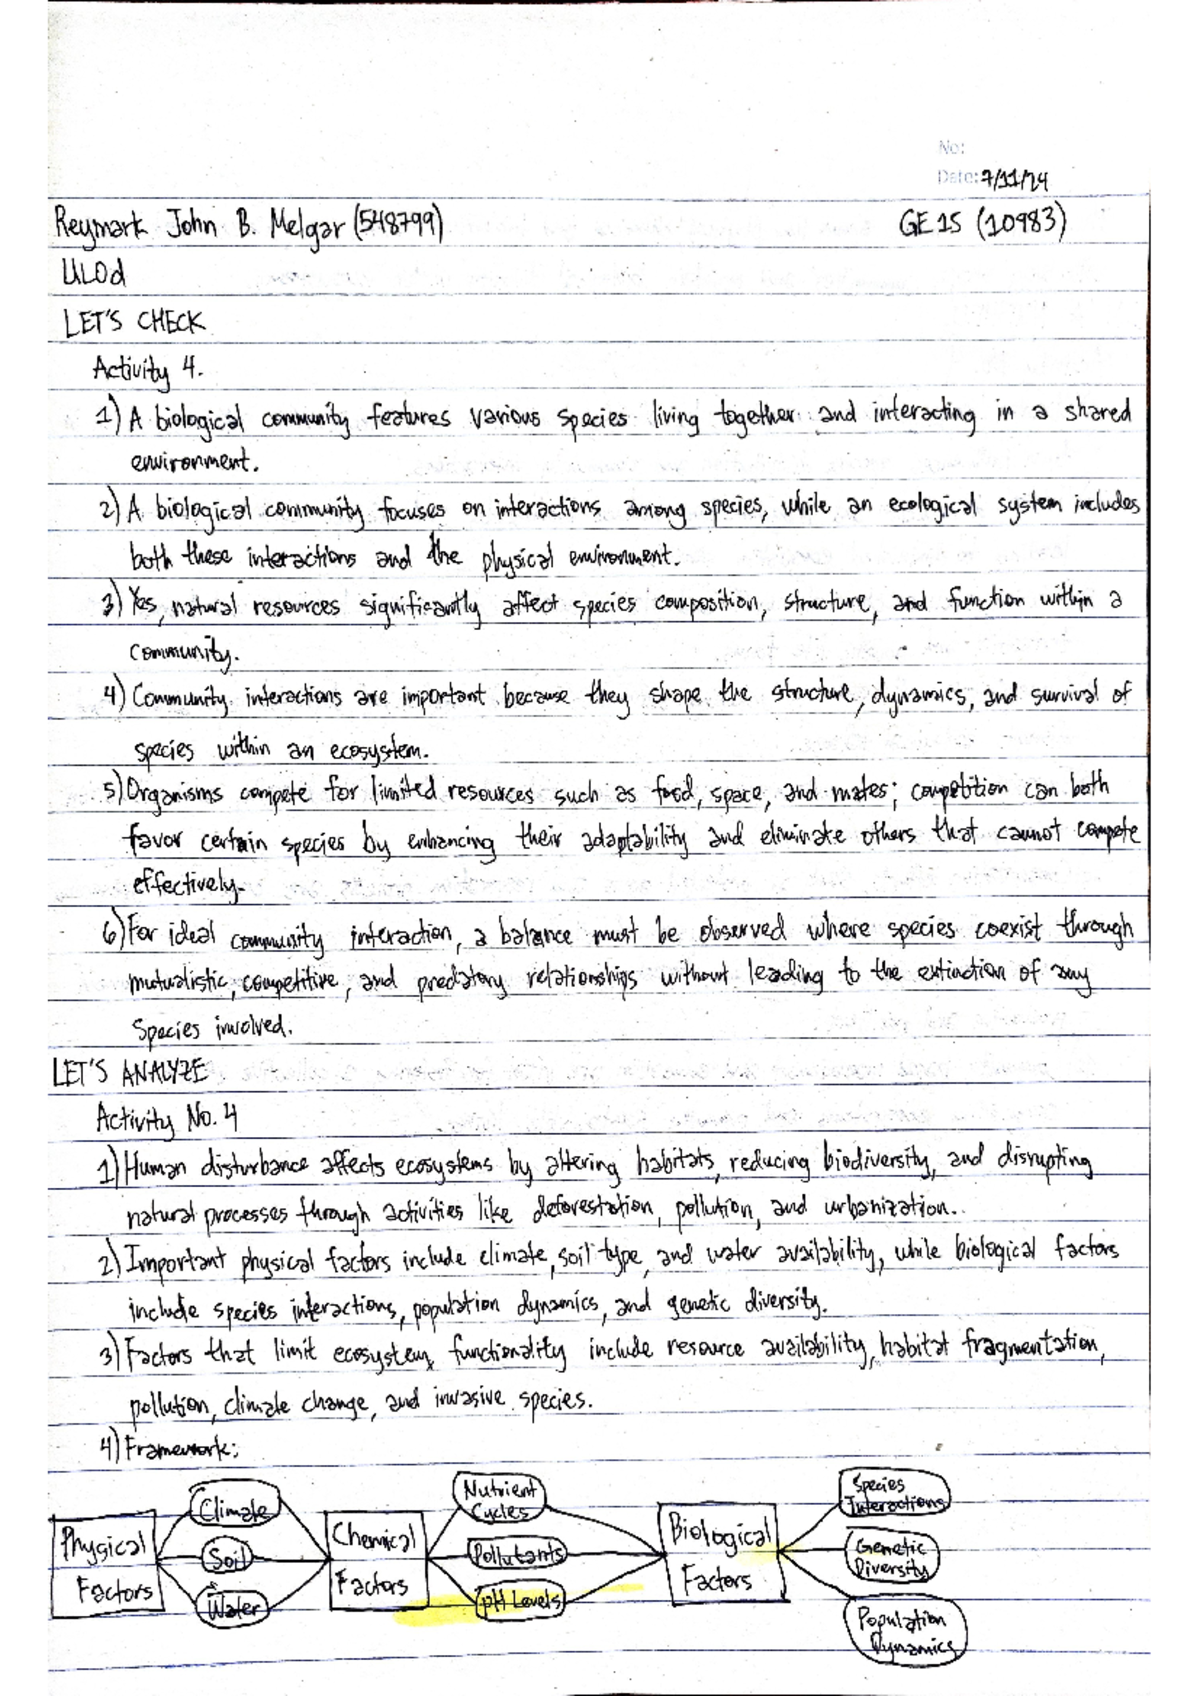 No:
Date: 7/11/24
Reymark John B. Melgar (548799) GE 15 (10983)
ULOd
LET'S CHECK
Activity 4.
1) A biological community features various species living together and interacting in a shared
environment.
2) A biological community focuses on interactions among species, while an ecological system includes
both these interactions and the physical environment.
3) Yes, natural resources significantly affect species composition, structure, and function within a
community.
4) Community interactions are important because they shape the structure, dynamics, and survival of
species within an ecosystem.
5) Organisms compete for limited resources such as food, space, and mates; competition can both
favor certain species by enhancing their adaptability and eliminate others that cannot compete
effectively.
6) For ideal community interaction, a balance must be observed where species coexist through
mutualistic, competitive, and predatory relationships without leading to the extinction of any
species involved.
LET'S ANALYZE
Activity No. 4
1) Human disturbance affects ecosystems by altering habitats, reducing biodiversity, and disrupting
natural processes through activities like deforestation, pollution, and urbanization.
2) Important physical factors include climate, soil type, and water availability, while biological factors
include species interactions, population dynamics, and genetic diversity.
3) Factors that limit ecosystem functionality include resource availability, habitat fragmentation,
pollution, climate change, and invasive species.
4) Framework:
Physical
Factors
Climate
Soil
Water
Chemical
Factors
Nutrient
Cycles
Pollutants
pH Levels
Biological
Factors
Species
Interactions
Genetic
Diversity
Population
Dynamics